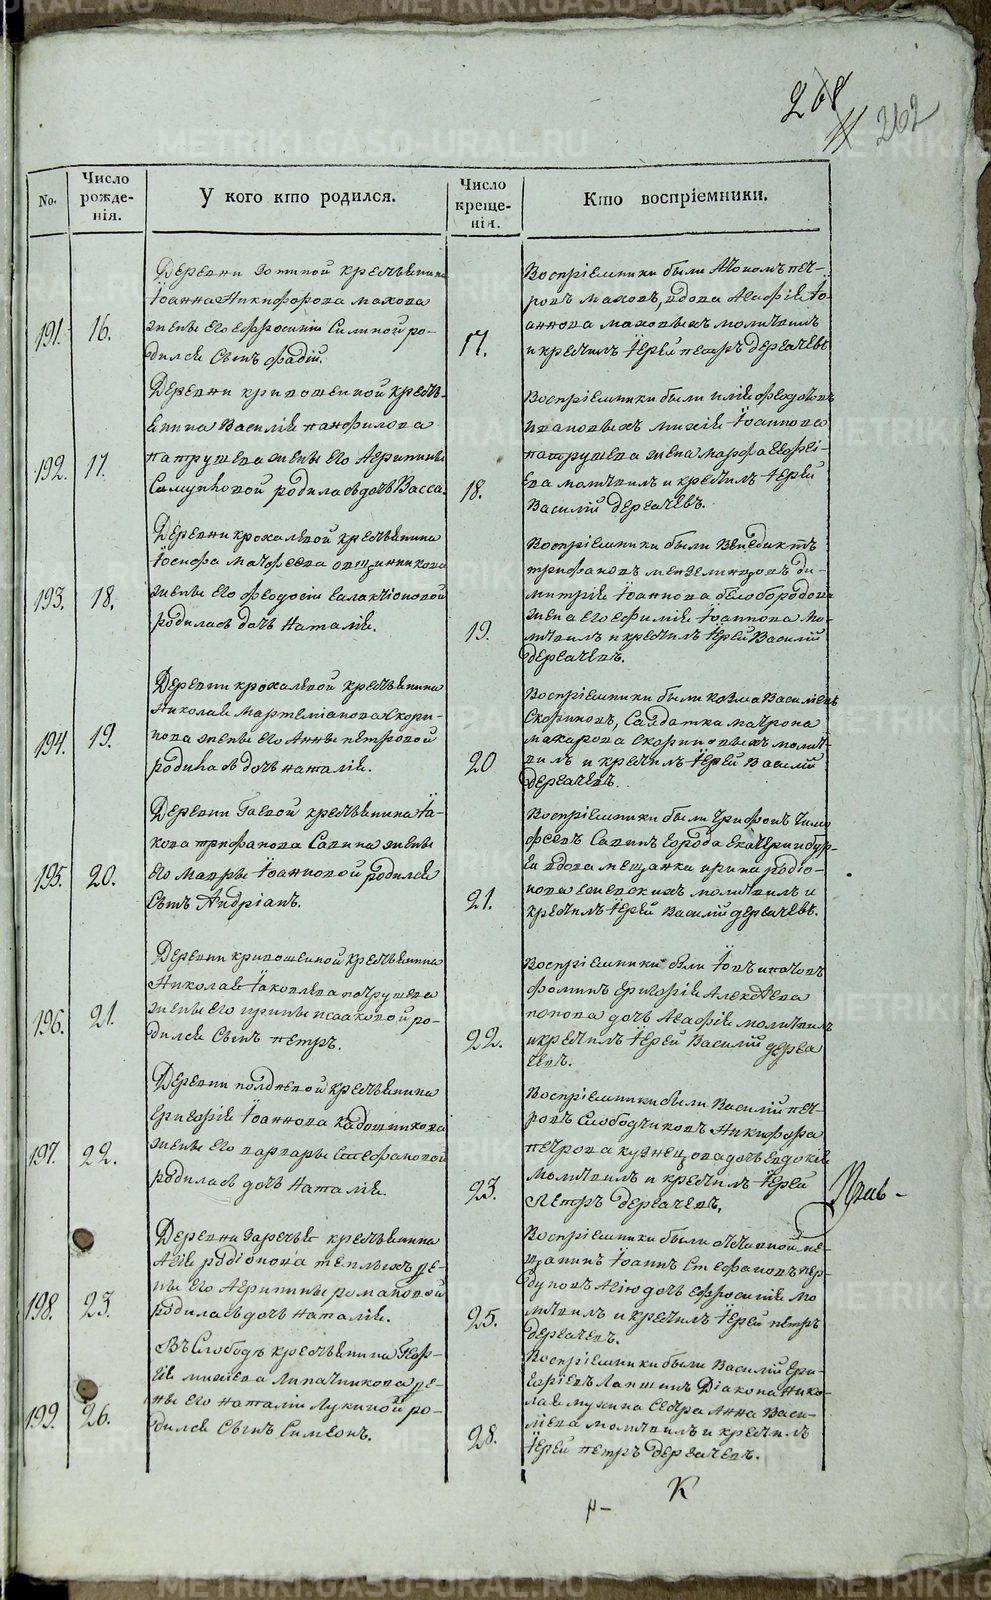 268
262
No.
Число
рожде-
нія.
У кого кто родился.
Число
креще-
нія.
Кто воспріемники.
191.
16.
Деревни крестьянина
Іоанна Никифорова Махова
жены его Ефросиніи Силиной ро-
дился сынъ Фадій.
17.
Воспріемники были Антонъ Пет-
ровъ Маховъ, вдова Агафія Іо-
аннова Маховыхъ молитвилъ
и крестилъ Іерей Петръ Дергачевъ
192.
17.
Деревни Кривошеиной кресть-
янина Василія Панфилова
Патрушева жены его Агрипины
Самуиловой родилась дочь Васса.
18.
Воспріемники были Илія Федотовъ
Ивановыхъ Михія Іоаннова
Патрушева жена Марфа
молитвилъ и крестилъ Іерей
Василій Дергачевъ.
193.
18.
Деревни Крохалевой крестьянина
Іосифа Матфеева Овчинникова
жены его Феодосіи Галактіоновой
родилась дочь Наталія.
19.
Воспріемники были Венедиктъ
Трифановъ Ди-
митрія Іоаннова Белобородова
жена его Ефимія Іоаннова мо-
литвилъ и крестилъ Іерей Василій
Дергачевъ.
194.
19.
Деревни Крохалевой крестьянина
Николая Мартеміанова Скори-
нова жены его Анны Петровой
родилась дочь Наталія.
20
Воспріемники были Козма Василіевъ
Скориновъ, Салдатка Матрона
Макарова Скориновыхъ молит-
вилъ и крестилъ Іерей Василій
Дергачевъ.
195.
20.
Деревни Гаевой крестьянина Іа-
кова Трифанова Савина жены
его Мавры Іоанновой родился
сынъ Андріанъ.
21.
Воспріемники были Трифонъ Тимо
феевъ Савинъ города Екатеринбур-
га вдова мещанка Ирина Родіо-
нова молитвилъ и
крестилъ Іерей Василій Дергачевъ.
196.
21.
Деревни Кривошеиной крестьянина
Николая Іаковлева Патрушева
жены его Ирины Исааковой ро-
дился сынъ Петръ.
22.
Воспріемники были Іовъ Ипатовъ
Фоминъ Григорія Алексеева
Попова дочь Агафія молитвилъ
и крестилъ Іерей Василій Дерга
чевъ.
197.
22.
Деревни Полдневой крестьянина
Григорія Іоаннова Кадошникова
жены его Варвары Стефановой
родилась дочь Наталія.
23.
Воспріемники были Василій Пет-
ровъ Слободчиковъ Никифора
Петрова Кузнецова дочь Евдокія
молитвилъ и крестилъ Іерей
Петръ Дергачевъ.
198.
23.
Деревни Заречья крестьянина
Агія Родіонова Теплыхъ же-
ны его Агрипины Романовой
родилась дочь Наталія.
25.
Воспріемники были
Іоаннъ Стефановъ
дочь Ефросинія мо
литвилъ и крестилъ Іерей Петръ
Дергачевъ.
199.
26.
Въ Слободе крестьянина Геор-
гія Михіева Липатникова же-
ны его Наталіи Лукиной ро-
дился сынъ Симеонъ.
28.
Воспріемники были Василій Гри-
горіевъ Лапшинъ Діакона Нико-
лая Мухина сестра Анна Васи-
ліева молитвилъ и крестилъ
Іерей Петръ Дергачевъ.
К
METRIKI.GASO-URAL.RU